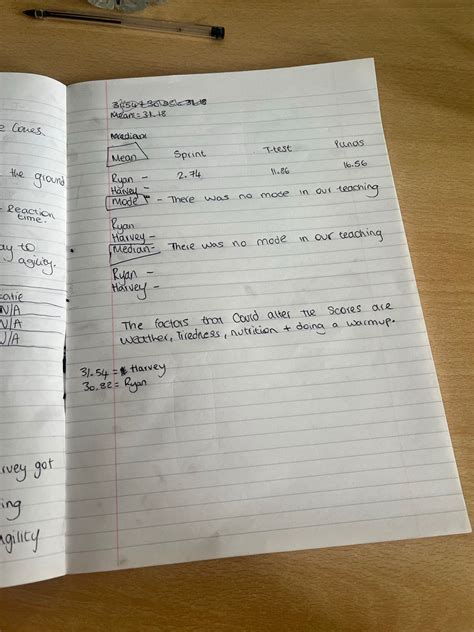 e Cones.
the ground
Reaction
time.
ay to
agility.
N/A
N/A
N/A
rvey got
ing
agility
Mean = 31.18
Median
Mean Sprint T-test Punos
Ryan - 2.74 11.86 16.56
Harvey -
Mode - There was no mode in our teaching
Ryan
Harvey -
Median - There was no mode in our teaching
Ryan -
Harvey -
The factors that Could alter the Scores are
weather, Tiredness, nutrition + doing a warmup.
31.54 = Harvey
30.82 = Ryan